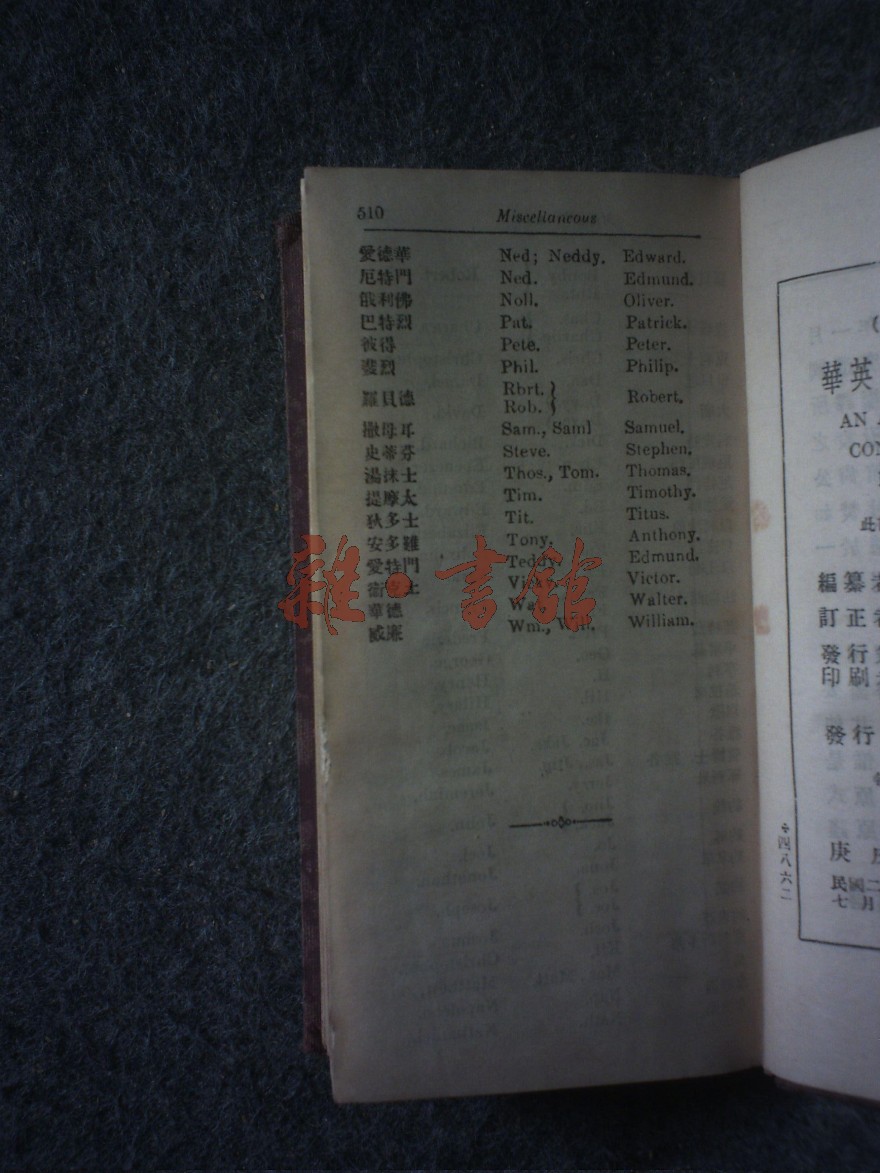 510 Miscellaneous
愛德華 Ned; Neddy. Edward.
厄特門 Ned. Edmund.
俄利佛 Noll. Oliver.
巴特烈 Pat. Patrick.
彼得 Pete. Peter.
斐烈 Phil. Philip.
羅貝德 Rbrt. Rob. } Robert.
撒母耳 Sam., Saml Samuel.
史蒂芬 Steve. Stephen.
湯抹士 Thos., Tom. Thomas.
提摩太 Tim. Timothy.
狄多士 Tit. Titus.
安多雖 Tony. Anthony.
愛特門 Teddy. Edmund.
Victor.
華德 Walter.
威廉 Wm., William.
雜·書館
華英
AN
CON
此
編纂
訂正
發行
印刷
發行
庚
民國二
七月
四八六二